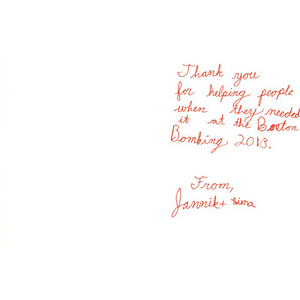 Thank you
for helping people
when they needed
it at the Boston
Bombing 2013.
From,
Jannik + Sima